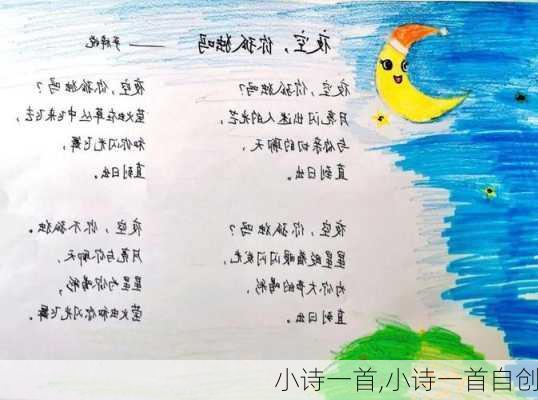 夜空，你孤独吗 ——
夜空，你孤独吗？
月亮闪出迷人的光芒，
与你亲切的聊天，
直到日出。
夜空，你孤独吗？
萤火虫在草丛中飞来飞去，
和你闪光飞舞，
直到日出。
夜空，你孤独吗？
星星眨着眼闪闪发光，
为你大声的喝彩，
直到日出。
夜空，你不孤独。
月亮与你聊天，
星星为你喝彩，
萤火虫和你闪光飞舞。
小诗一首,小诗一首自创